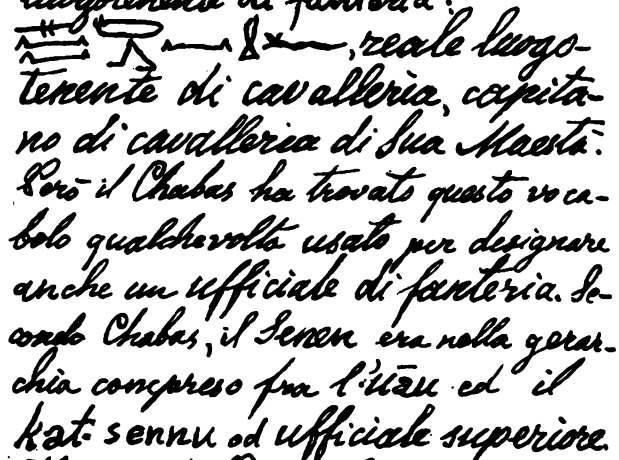 luogotenente di fanteria.
, reale luogo-
tenente di cavalleria, capita-
no di cavalleria di Sua Maestà.
Però il Chabas ha trovato questo voca-
bolo qualchevolta usato per designare
anche un ufficiale di fanteria. Se-
condo Chabas, il Senen era nella gerar-
chia compreso fra l'uāu ed il
kat-sennu od ufficiale superiore.